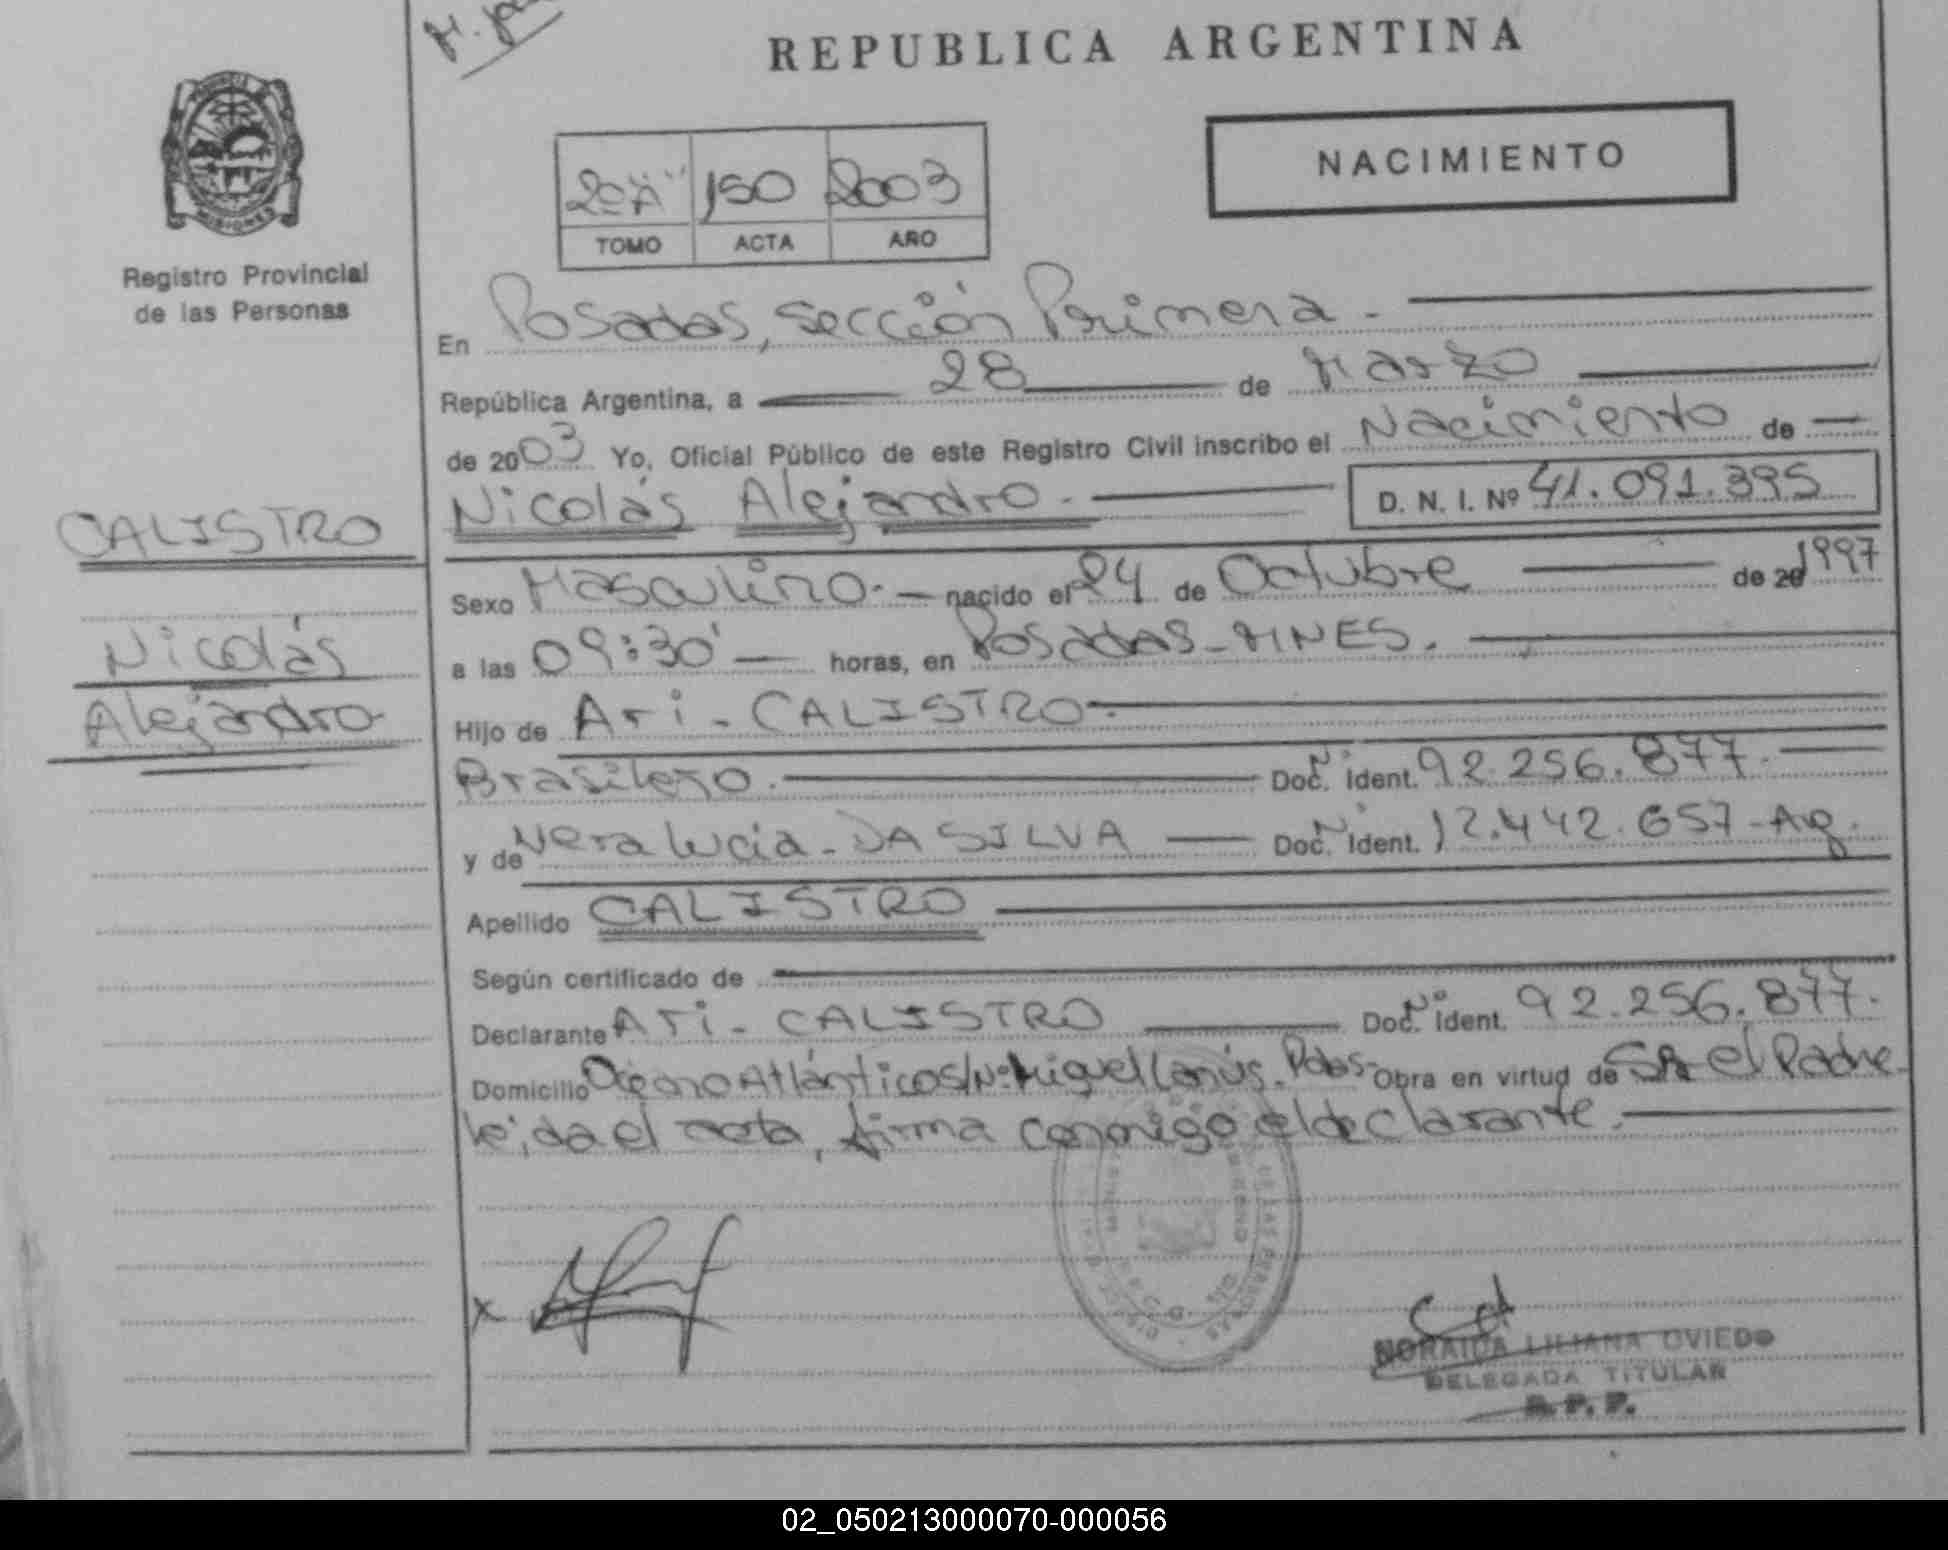 REPUBLICA ARGENTINA
PROVINCIA DE MISIONES
Registro Provincial
de las Personas
NACIMIENTO
2º "A" 150 2003
TOMO ACTA AÑO
En Posadas, Sección Primera.
República Argentina, a 28 de Marzo
de 2003 Yo, Oficial Público de este Registro Civil inscribo el Nacimiento de
Nicolás Alejandro. D. N. I. Nº 41.091.395
CALISTRO
Nicolás
Alejandro
Sexo Masculino. nacido el 24 de Octubre de 20 1997
a las 09:30' horas, en Posadas-MNES.
Hijo de Ari - CALISTRO.
Brasilero. Doc. Nº Ident. 92.256.877.
y de Vera Lucia - DA SILVA Doc. Nº Ident. 12.442.657-Ag.
Apellido CALISTRO
Según certificado de
Declarante Ari - CALISTRO Doc. Nº Ident. 92.256.877.
Domicilio Océano Atlántico S/Nº Miguel Lanús. Pdas- Obra en virtud de SR el Padre
leída el acta, firma conmigo el declarante.
x
NORAIDA LILIANA OVIEDO
DELEGADA TITULAR
R. P. P.
02_050213000070-000056